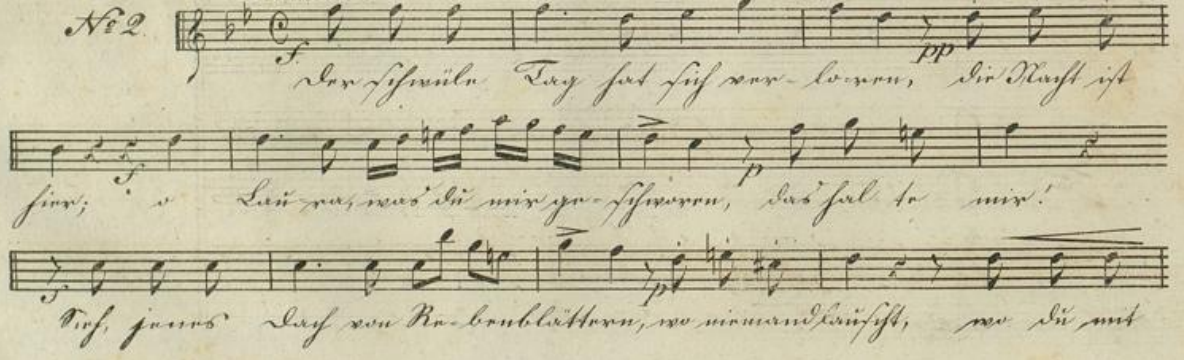 No 2.
f. pp
Der schwüle Tag hat sich ver-lo-ren, die Nacht ist
f p
hier; o Lau ra, was du mir ge-schworen, das hal te mir!
f p
Sieh, jenes Dach von Re-benblättern, wo niemand lauscht, wo du mit